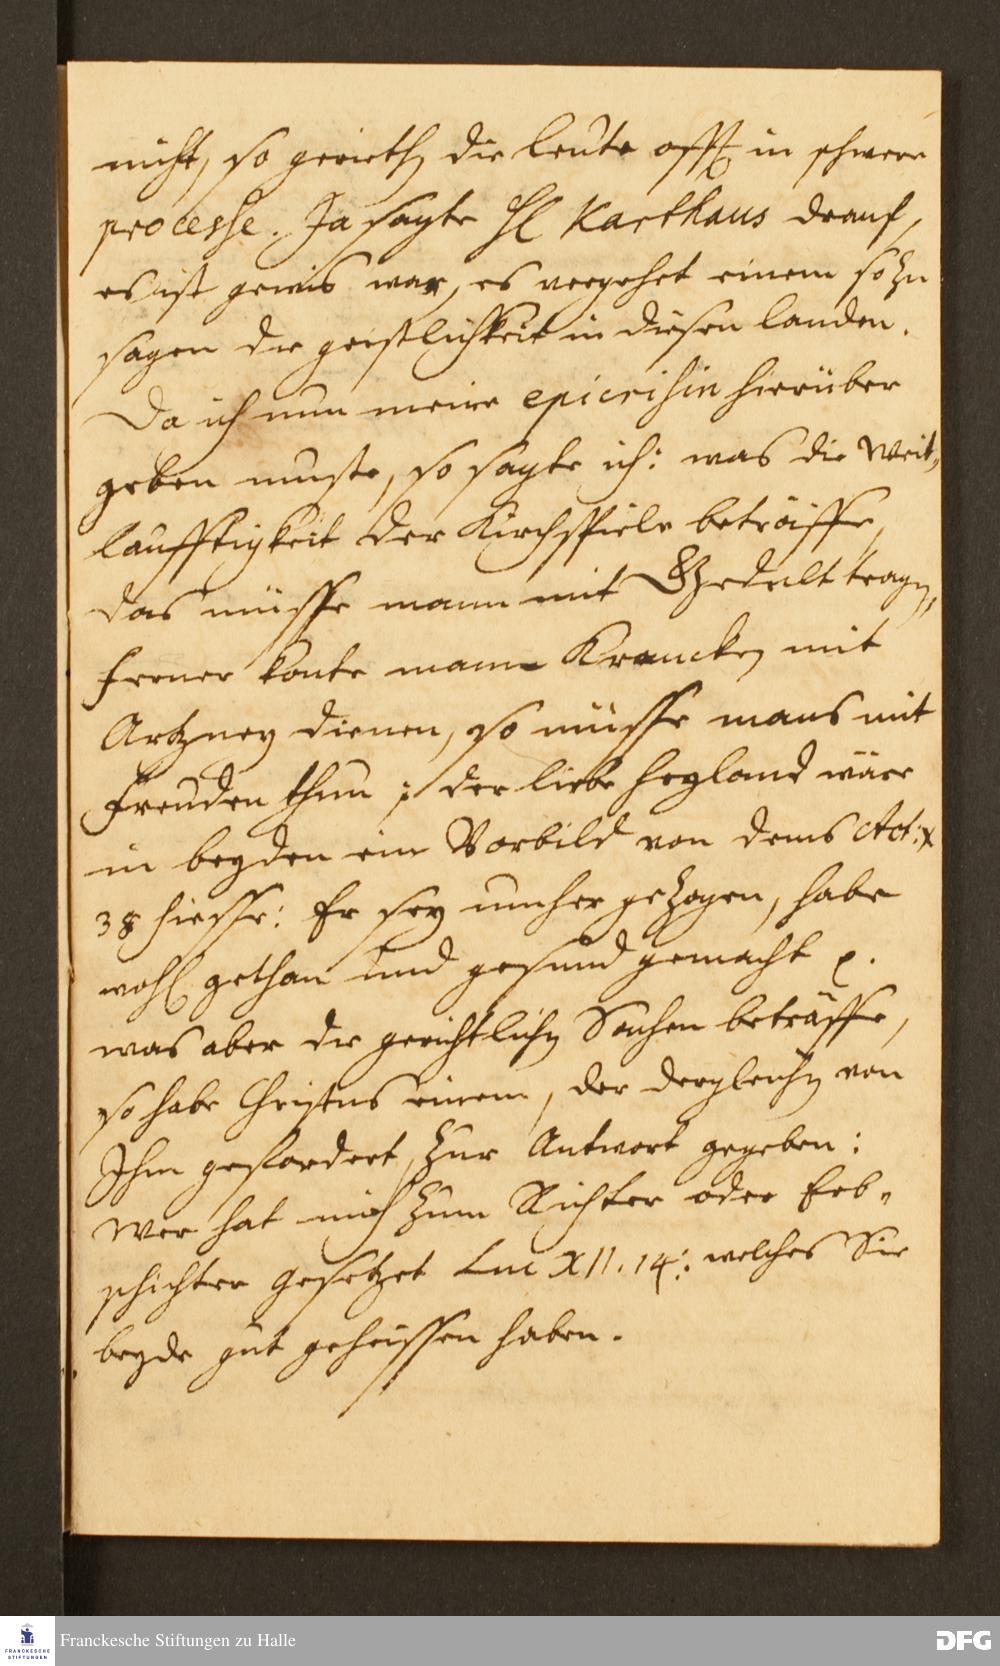 nicht, so geriethen die leute offt in schwere
processe. Ja sagte Hl Karthaus drauf,
es ist gewis war, es vergehet einem so zu
sagen die geistlichkeit in diesen landen.
Da ich nun meine epicrisin hierüber
geben muste, so sagte ich: was die Weit„
laufftigkeit der Kirchspiele beträiffe,
das müsse mann mit Gedult tragen,
ferner konte mann Krancken mit
Artzney dienen, so müsse mans mit
Freuden thun; der liebe heyland wäre
in beyden ein Vorbild von dems Act: X
38 hiesse: Er sey umher gezogen, habe
wohl gethan und gesund gemacht p.
was aber die gerichtlichen Sachen beträffe,
so habe Christus einem, der dergleichen von
Ihm gefordert, zur Antwort gegeben:
Wer hat mich zum Richter oder Erb„
schichter gesetzet Luc XII. 14: welches Sie
beyde gut geheissen haben.
Franckesche Stiftungen zu Halle
FRANCKESCHE
STIFTUNGEN
DFG